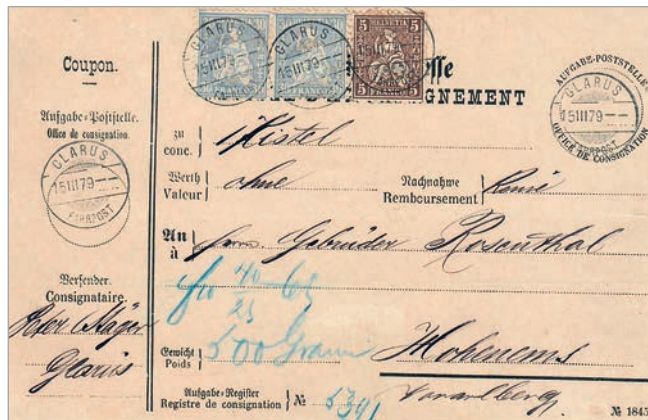 Coupon.
Aufgabe-Poststelle.
Office de consignation.
GLARUS
15 III 79
FAHRPOST
Versender.
Consignataire.
Peter Stäger
Glarus
GLARUS
15 III 79
GLARUS
15 III 79
HELVETIA
5 5
5 FRANCO 5
FRANCO
FRANCO
GNEMENT
AUFGABE-POSTSTELLE
GLARUS
15 III 79
FAHRPOST
OFFICE DE CONSIGNATION
zu
conc.
1 Kistel
Werth
Valeur
ohne
Nachnahme
Remboursement
An
à
Herrn Gebrüder Rosenthal
Gewicht
Poids
500 Gramm
Hohenems
Vorarlberg
Aufgabe-Register
Registre de consignation
№ 5391
№ 1845